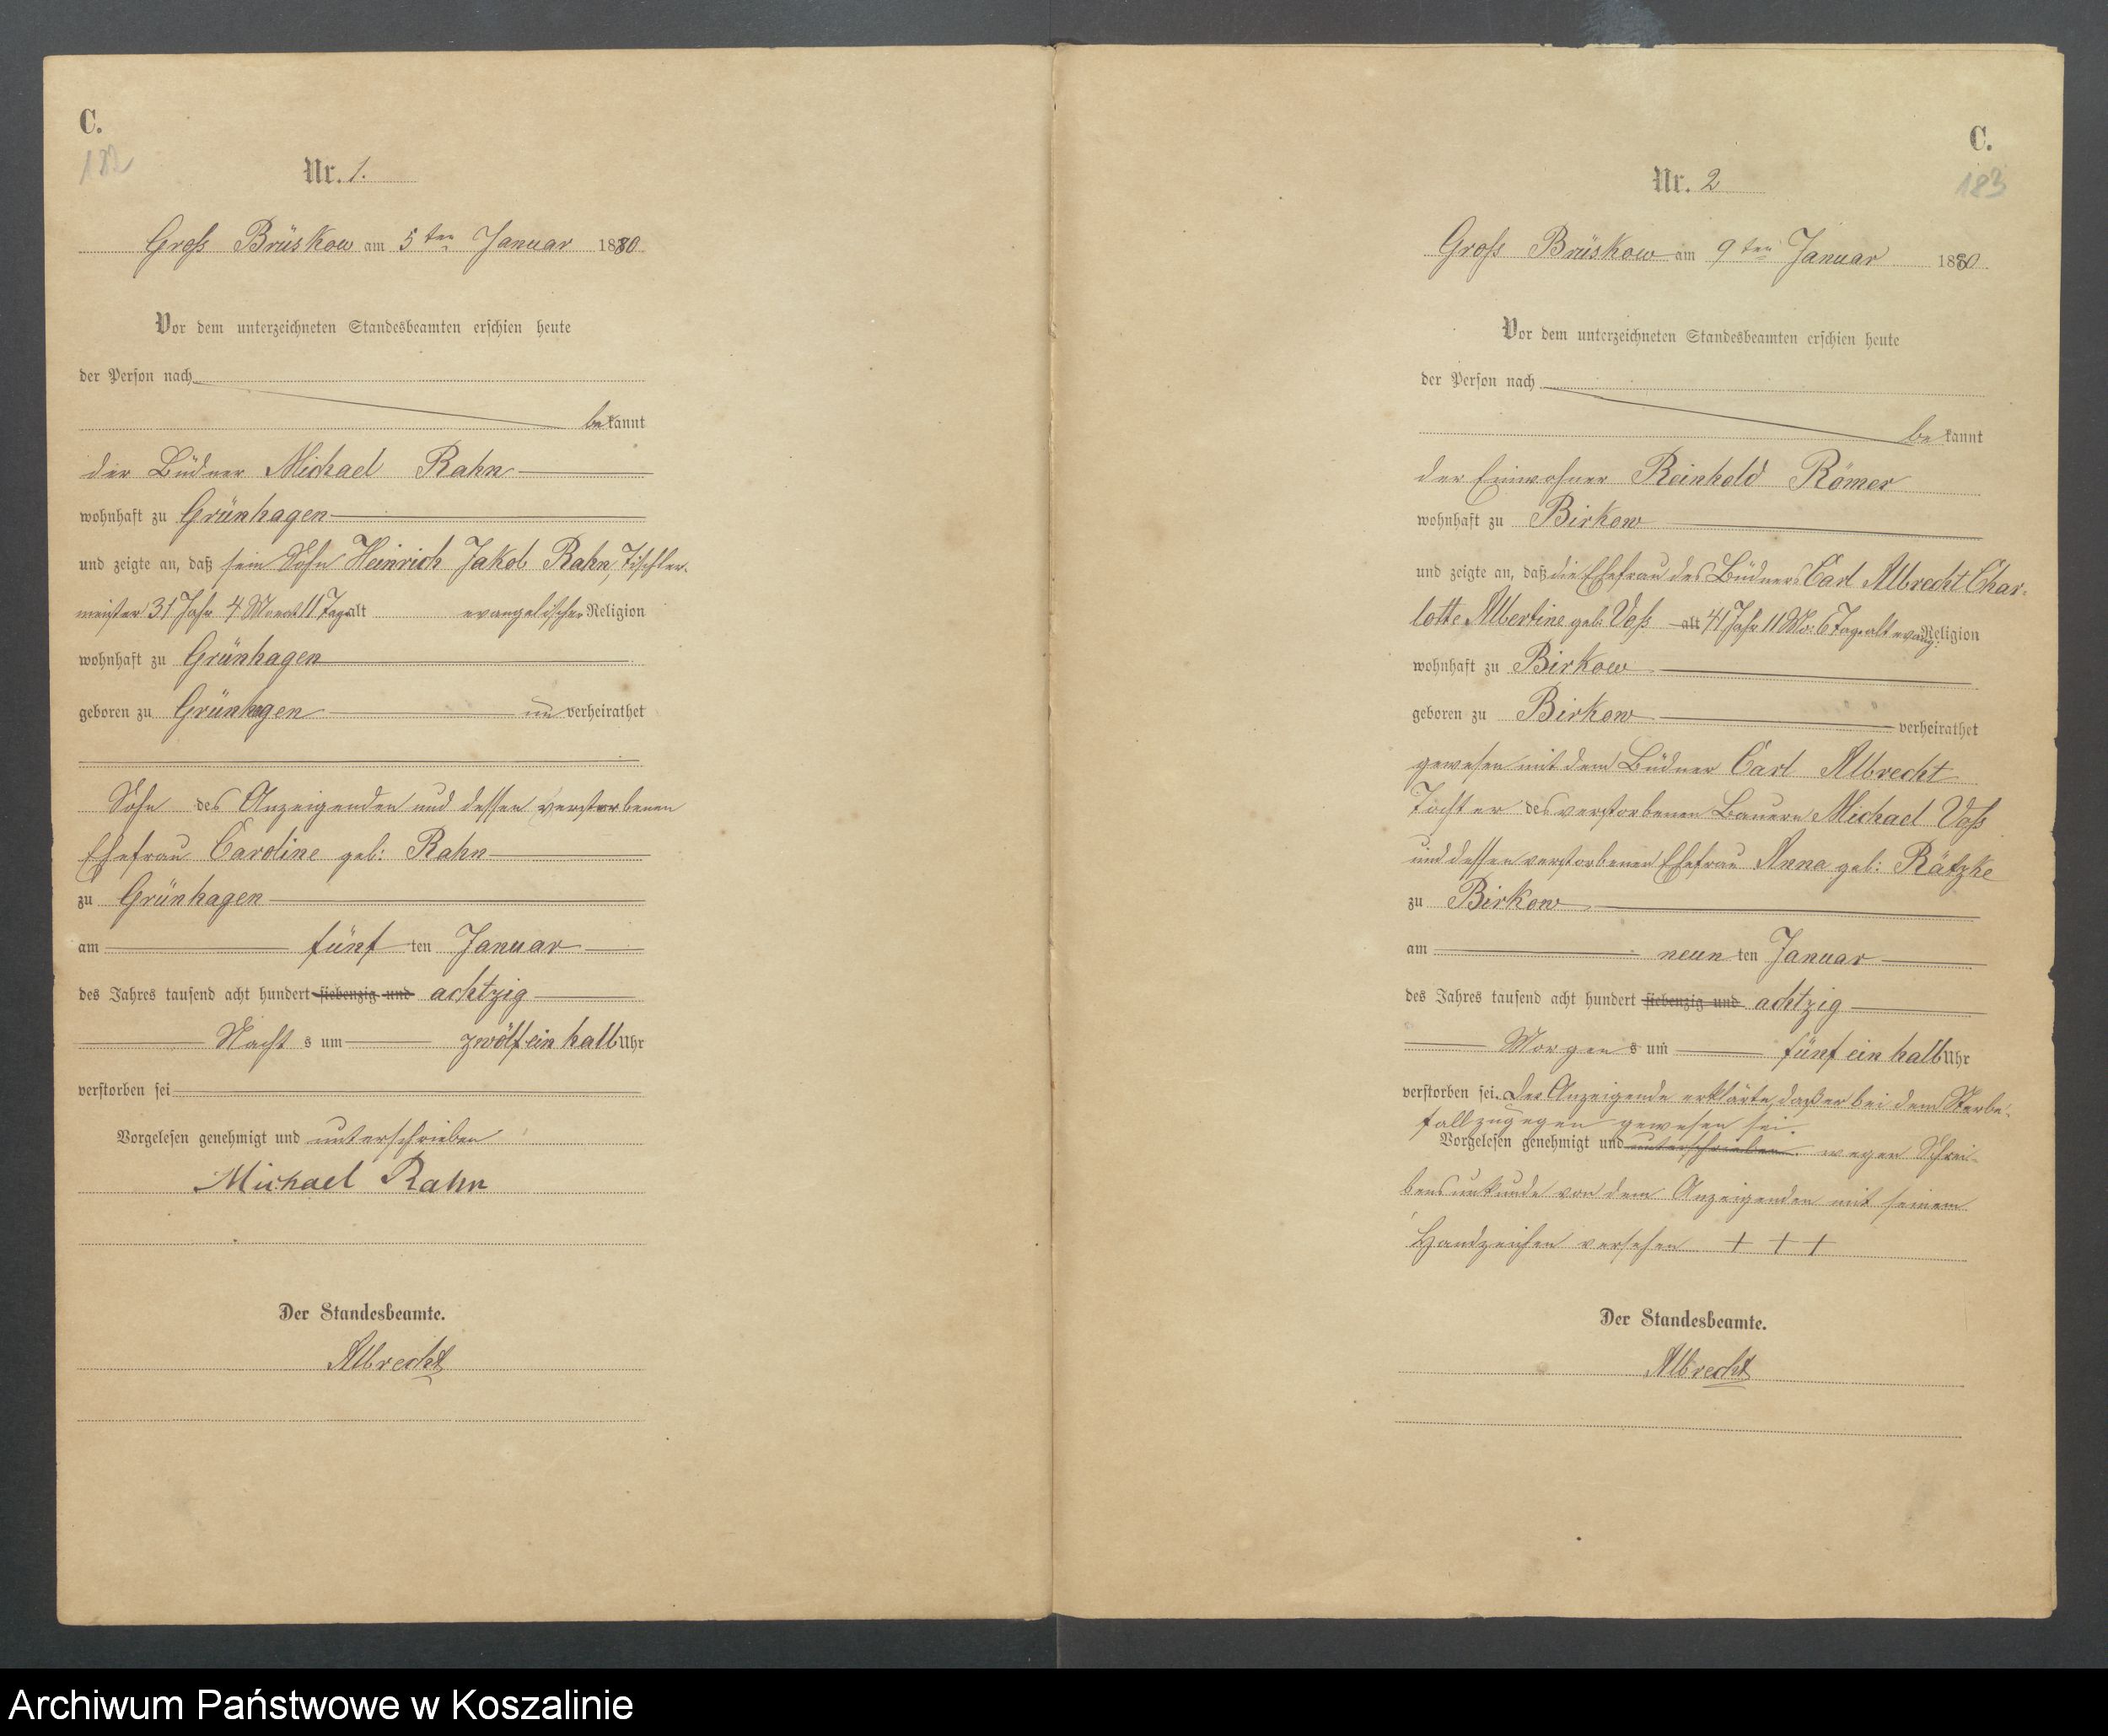 C.
182
Nr. 1.
Groß Brüskow am 5ten Januar 1880
Vor dem unterzeichneten Standesbeamten erschien heute
der Person nach
bekannt
der Büdner Michael Rahn
wohnhaft zu Grünhagen
und zeigte an, daß sein Sohn Heinrich Jakob Rahn, Tischler-
meister 31 Jahr 4 Monat 11 Tage alt evangelischer Religion
wohnhaft zu Grünhagen
geboren zu Grünhagen unverheirathet
Sohn des Anzeigenden und dessen verstorbenen
Ehefrau Caroline geb: Rahn
zu Grünhagen
am fünf ten Januar
des Jahres tausend acht hundert siebenzig und achtzig
Nacht s um zwölf ein halb Uhr
verstorben sei
Vorgelesen genehmigt und unterschrieben
Michael Rahn
Der Standesbeamte.
Albrecht
C.
183
Nr. 2
Groß Brüskow am 9ten Januar 1880
Vor dem unterzeichneten Standesbeamten erschien heute
der Person nach
bekannt
der Einwohner Reinhold Römer
wohnhaft zu Birkow
und zeigte an, daß die Ehefrau des Büdners Carl Albrecht Char-
lotte Albertine geb: Voß alt 41 Jahr 11 Mo: 6 Tage alt evang: Religion
wohnhaft zu Birkow
geboren zu Birkow verheirathet
gewesen mit dem Büdner Carl Albrecht
Tochter des verstorbenen Bauern Michael Voß
und dessen verstorbenen Ehefrau Anna geb: Rätzke
zu Birkow
am neun ten Januar
des Jahres tausend acht hundert siebenzig und achtzig
Morgen s um fünf ein halb Uhr
verstorben sei. Der Anzeigende erklärte, daß er bei dem Sterbe-
fall zugegen gewesen sei.
Vorgelesen genehmigt und unterschrieben. wegen Schrei-
bensunkunde von dem Anzeigenden mit seinem
Handzeichen versehen + + +
Der Standesbeamte.
Albrecht
Archiwum Państwowe w Koszalinie